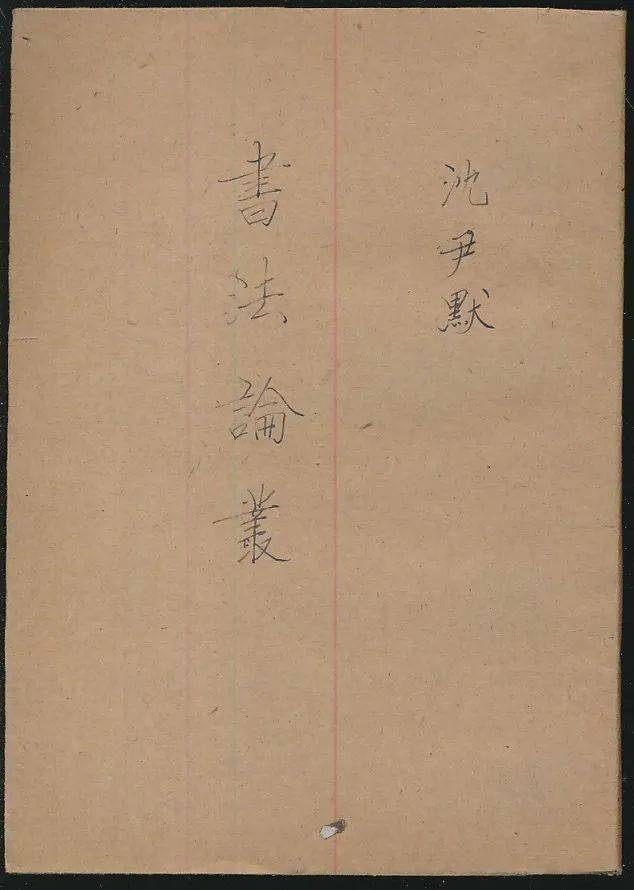 沈尹默
書法論叢